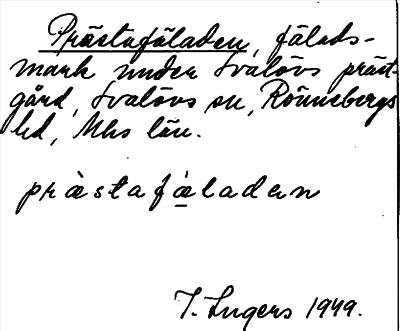 Prästafäladen, fälads-
mark under Svalövs präst-
gård, Svalövs sn, Rönnebergs
hd, Mhs län.
prästafäladen
I. Ingers 1949.